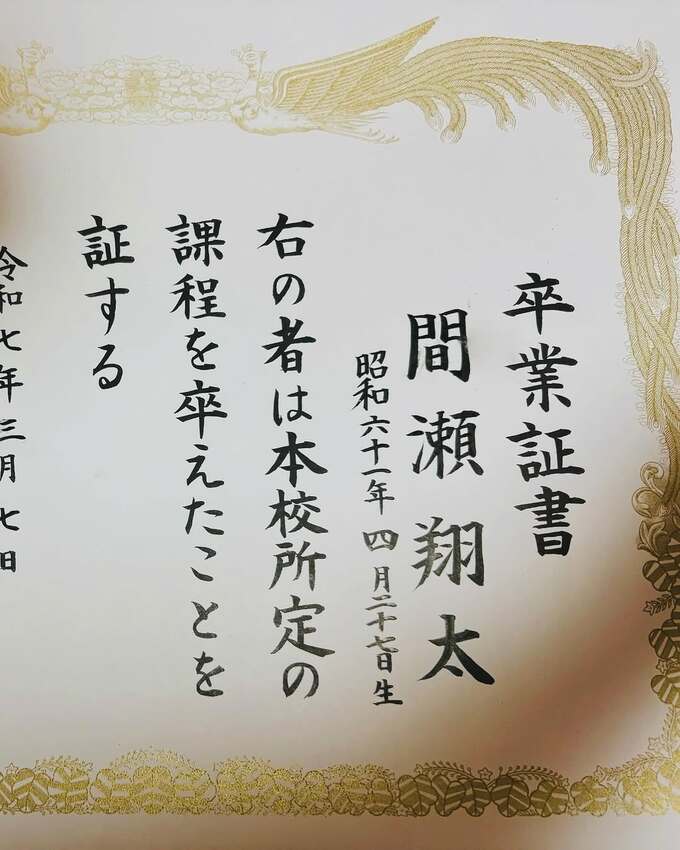 卒業証書
間瀬翔太
昭和六十一年四月二十七日生
右の者は本校所定の
課程を卒えたことを
証する
令和七年三月七日